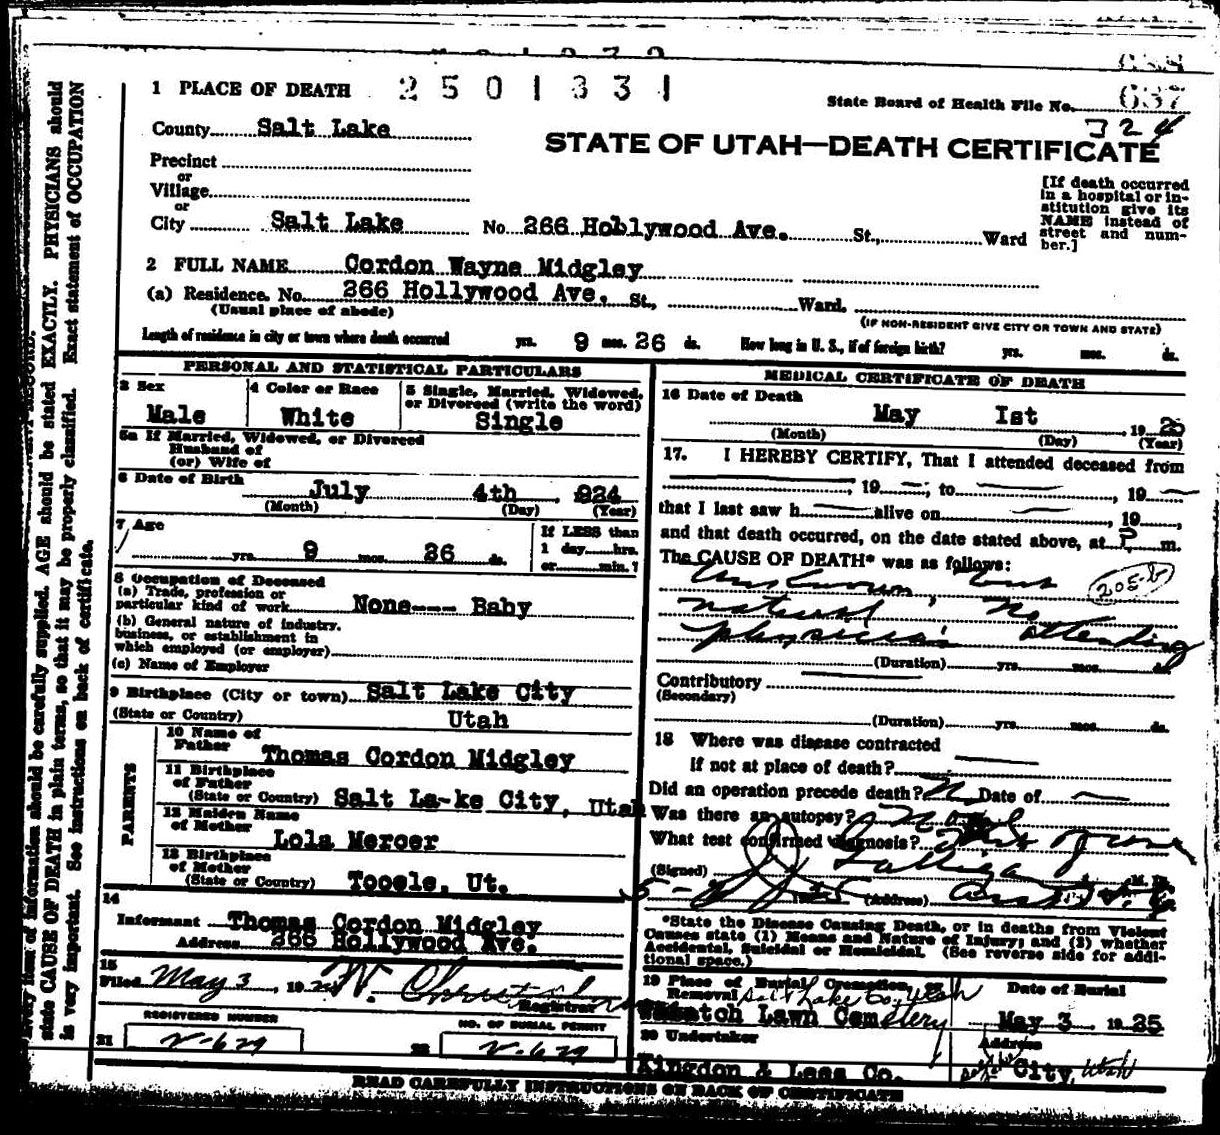 1 PLACE OF DEATH 2501331
State Board of Health File No. 637
324
County Salt Lake
STATE OF UTAH—DEATH CERTIFICATE
Precinct
or
Village
or
City Salt Lake No. 266 Hoblywood Ave. St., Ward
[If death occurred
in a hospital or in-
stitution give its
NAME instead of
street and num-
ber.]
2 FULL NAME Cordon Wayne Midgley
(a) Residence. No. 266 Hollywood Ave. St., Ward,
(Usual place of abode)
(IF NON-RESIDENT GIVE CITY OR TOWN AND STATE)
Length of residence in city or town where death occurred yrs. 9 mos. 26 ds. How long in U. S., if of foreign birth? yrs. mos. ds.
PERSONAL AND STATISTICAL PARTICULARS
3 Sex
Male
4 Color or Race
White
5 Single, Married, Widowed,
or Divorced (write the word)
Single
5a If Married, Widowed, or Divorced
Husband of
(or) Wife of
6 Date of Birth
July 4th 924
(Month) (Day) (Year)
7 Age
yrs. 9 mos. 26 ds.
If LESS than
1 day hrs.
or min.?
8 Occupation of Deceased
(a) Trade, profession or
particular kind of work None--- Baby
(b) General nature of industry,
business, or establishment in
which employed (or employer)
(c) Name of Employer
9 Birthplace (City or town) Salt Lake City
(State or Country) Utah
PARENTS
10 Name of
Father Thomas Cordon Midgley
11 Birthplace
of Father
(State or Country) Salt La-ke City, Utah
12 Maiden Name
of Mother Lola Mercer
13 Birthplace
of Mother
(State or Country) Tooele, Ut.
14
Informant Thomas Cordon Midgley
Address 266 Hollywood Ave.
15
Filed May 3, 192 W.
Registrar
REGISTERED NUMBER
21 N-629
NO. OF BURIAL PERMIT
22 N-629
MEDICAL CERTIFICATE OF DEATH
16 Date of Death
May Ist 19
(Month) (Day) (Year)
17. I HEREBY CERTIFY, That I attended deceased from
, 19 —; to — , 19 —
that I last saw h — alive on — , 19 ,
and that death occurred, on the date stated above, at P. m.
The CAUSE OF DEATH* was as follows:
Unknown, but 205-b
natural, No
physician attending
(Duration) yrs. mos. ds.
Contributory
(Secondary)
(Duration) yrs. mos. ds.
18 Where was disease contracted
if not at place of death?
Did an operation precede death? No Date of —
Was there an autopsy? No
What test confirmed diagnosis?
(Signed) M. D.
(Address)
*State the Disease Causing Death, or in deaths from Violent
Causes state (1) Means and Nature of Injury; and (2) whether
Accidental, Suicidal or Homicidal. (See reverse side for addi-
tional space.)
19 Place of Burial, Cremation, or
Removal Salt Lake Co. Utah
Wasatch Lawn Cemetery
Date of Burial
May 3 1925
20 Undertaker
Kingdon & Lees Co.
Address
City, Utah
READ CAREFULLY INSTRUCTIONS ON BACK OF CERTIFICATE
Every item of information should be carefully supplied. AGE should be stated EXACTLY. PHYSICIANS should
state CAUSE OF DEATH in plain terms, so that it may be properly classified. Exact statement of OCCUPATION
is very important. See instructions on back of certificate.